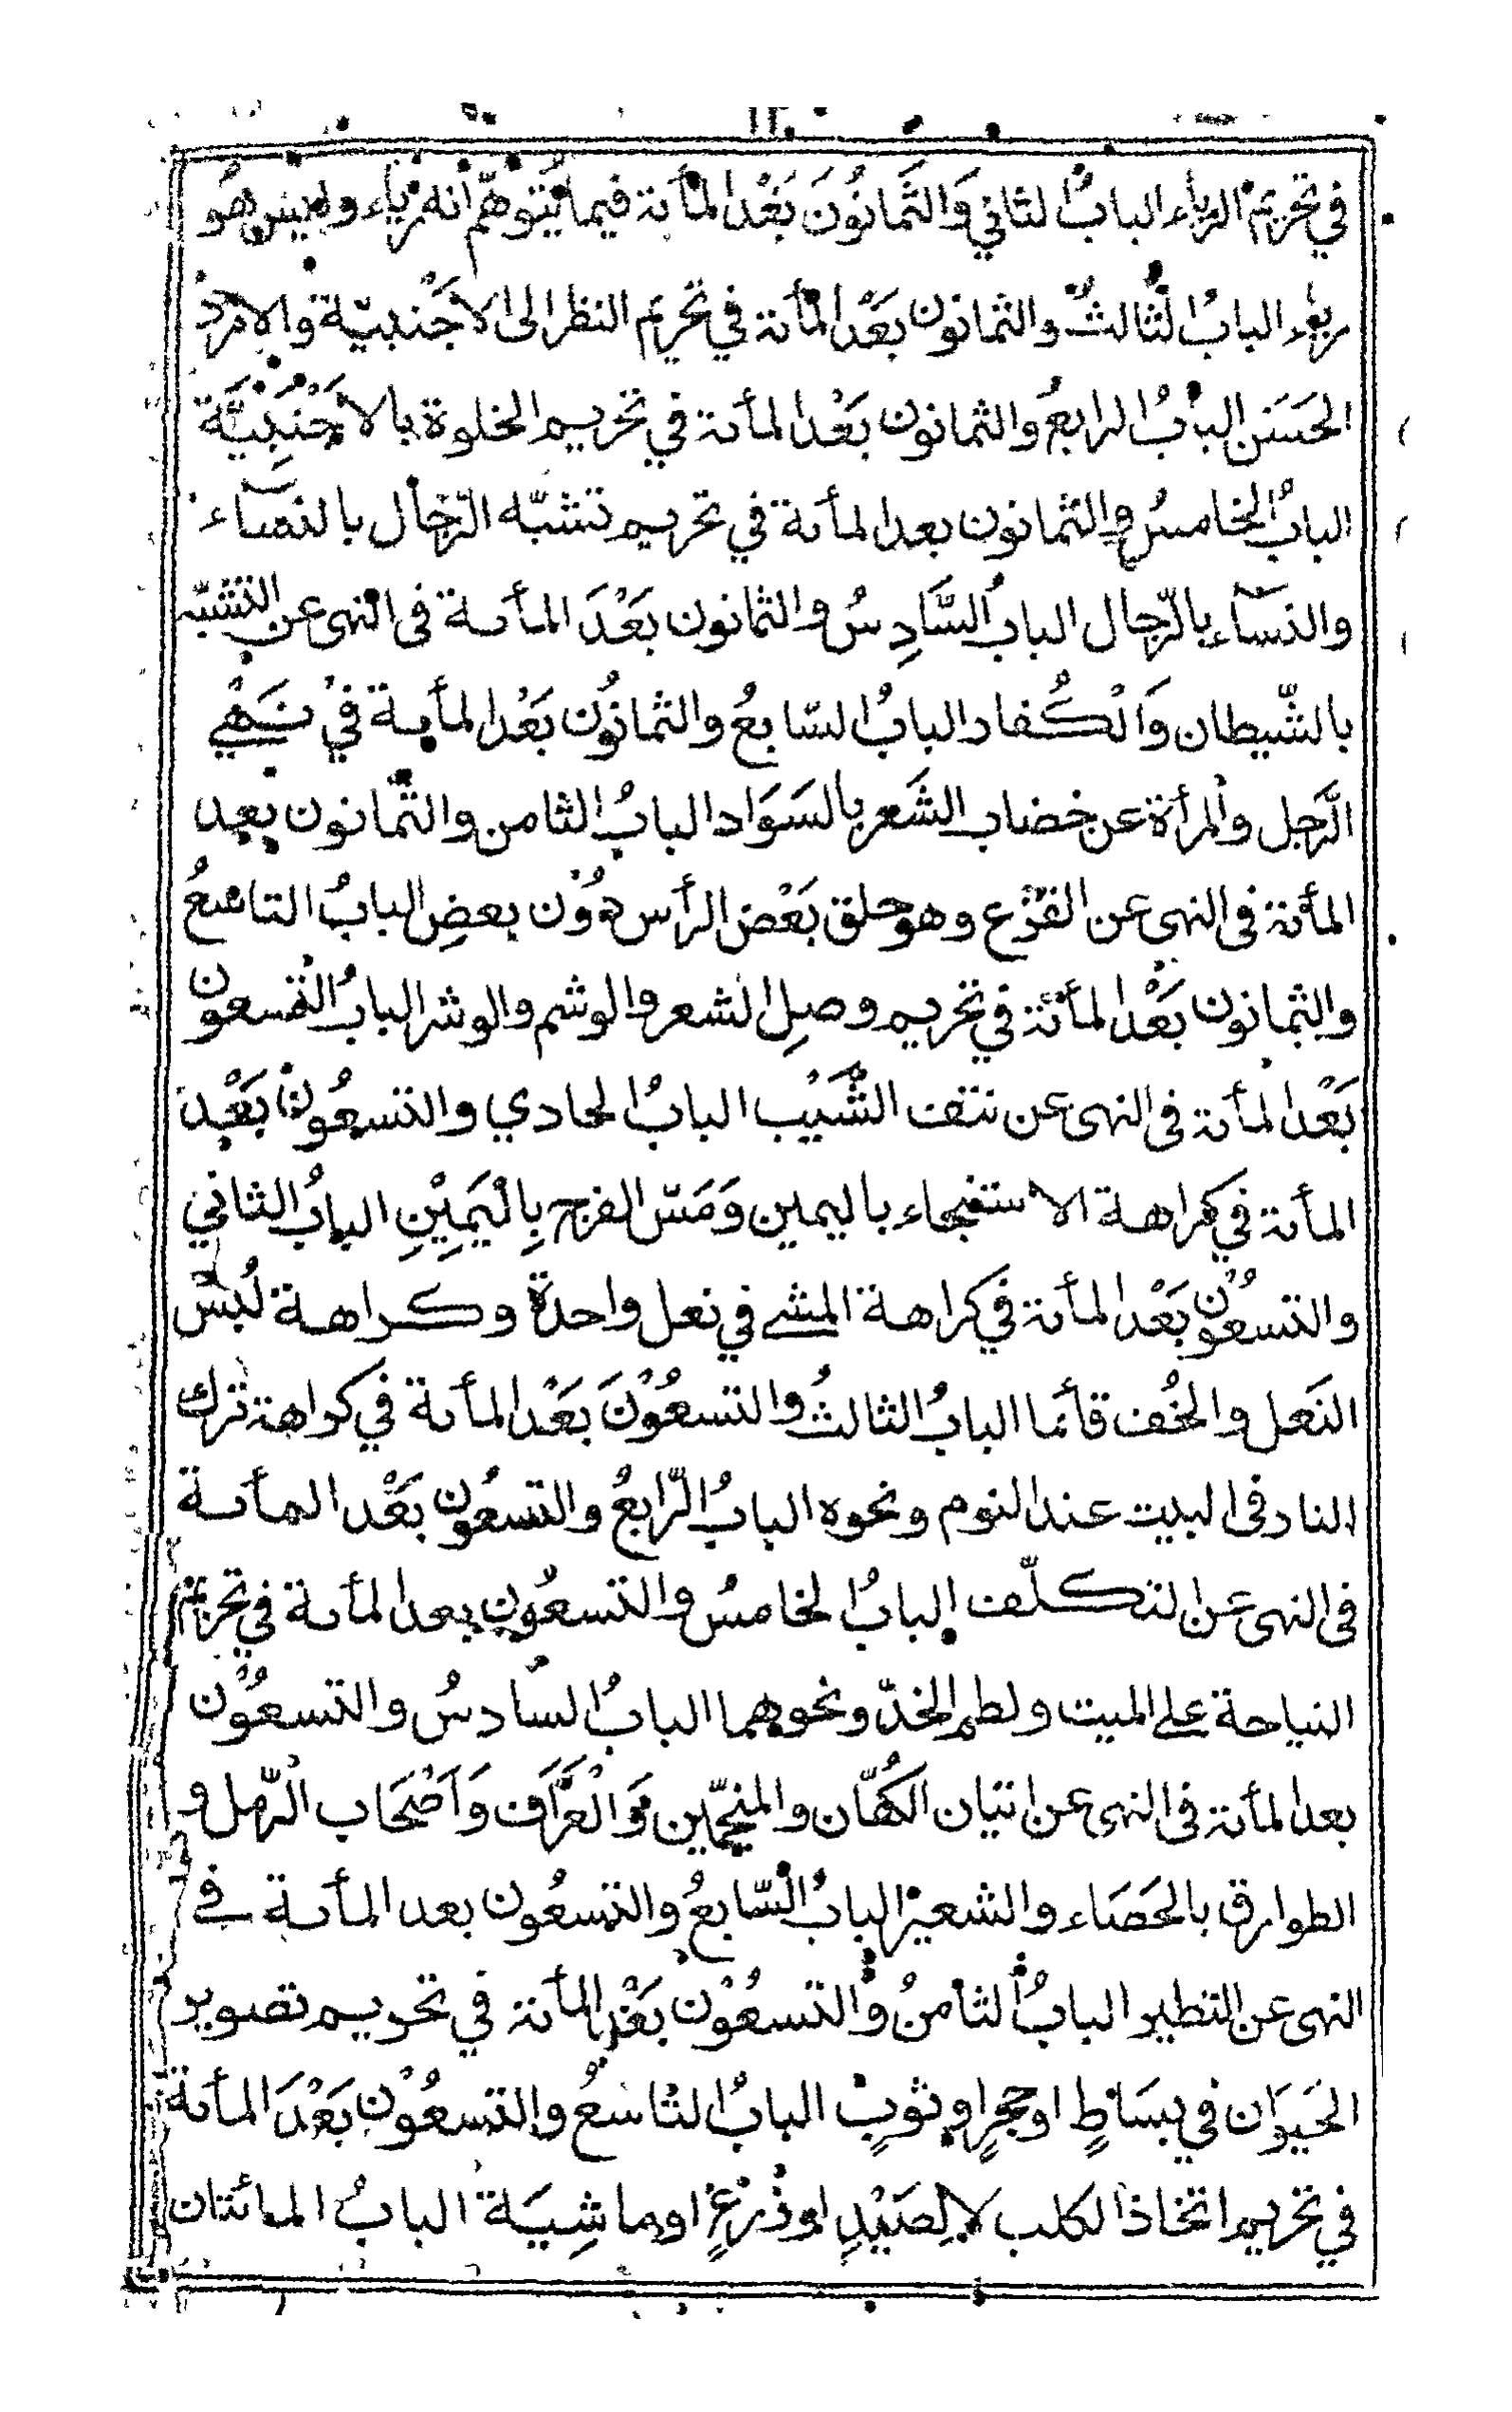 في تحريم الرياء البابُ الثاني وَالثَّمانُونَ بَعْدَ المأية فيما يُتوهَّم أنه رياء وليس هُو
برياء البابُ الثالثُ والثمانون بَعْدَ المأية في تحريم النظر الى الاَجْنبيّة والامرد
الحَسَن البابُ الرابعُ والثمانون بَعْدَ المأية في تحريم الخلوة بالاَجْنَبِيَّة
البابُ الخامسُ والثمانون بعد المأية في تحريم تشبّه الرّجال بالنسآء
والنسآء بالرّجال البابُ السَّادِسُ والثمانون بَعْدَ المأية فى النهى عن التشبّه
بالشّيطان وَالْكُفار البابُ السّابعُ والثمانُون بَعْدَ المأية فيْ نَهْي
الرَّجل والمرأة عن خضاب الشَعر بالسَوَاد البابُ الثامن والثمانون بعد
المأية فى النهى عن القَزَع وهو حلق بَعْض الرأس دُوْن بعضِ البابُ التاسعُ
والثمانون بَعْدَ المأية في تحريم وصلِ الشعر والوشم والوشر البابُ التسعون
بَعْدَ المأية فى النهى عن نتف الشَّيْب البابُ الحادي والتسعُون بَعْدَ
المأية في كراهة الاستنجاء باليمين وَمَسّ الفرج بِالْيَمِيْنِ البابُ الثاني
والتسعُوْن بَعْدَ المأية في كراهة المشے في نعل واحدة وكراهة لُبْس
النَعل والخُف قائما البابُ الثالثُ والتسعُوْنَ بَعْدَ المأية في كراهة ترك
النار فى البيت عند النوم ونحوه البابُ الرّابعُ والتسعُون بَعْد المأية
فى النهى عن التكلّف البابُ الخامسُ والتسعُون بعد المأية في تحريم
النياحة على الميت ولطم الخدّ ونحوهما البابُ السّادسُ والتسعُوْن
بعد المأية فى النهى عن اتيان الكُهّان والمنجّمين وَالْعَرَّاف وَاَصْحَاب الرّمل و
الطوارق بالحَصَاء والشعير البابُ السّابعُ والتسعُون بعد المأية في
النهى عن التطير البابُ الثامنُ والتسعُوْن بَعْدَ المأية في تحريم تصوير
الحَيوَان في بِسَاطٍ او حجرٍ او ثوبٍ البابُ التاسعُ والتسعُوْن بَعْدَ المأية
في تحريم اتخاذ الكلب لا لِصَيْدِ او ذرعٍ او ماشِيَة البابُ المائتان